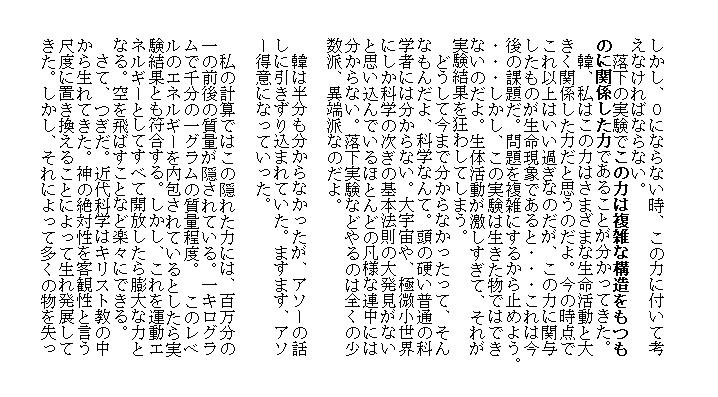 しかし、０にならない時、この力に付いて考
えなければならない。
　落下の実験でこの力は複雑な構造をもつも
のに関係した力であることが分かってきた。
　韓、私はこの力はさまざまな生命活動と大
きく関係した力だと思うのだよ。今の時点で
これ以上はいい過ぎなのだが、この力に関与
したものが生命現象であると・・・これは今
後の課題だ。問題を複雑にするから止めよう。
・・・しかし、この実験は生きた物ではでき
ないのだよ。生体活動が激しすぎて、それが
実験結果を狂わしてしまう。
　どうして今まで分からなかったって、そん
なもんだよ、科学なんて。頭の硬い普通の科
学者には分からない。大宇宙や、極微小世界
にしか科学の次ぎの基本法則の大発見がない
と思い込んでいるほとんどの凡様な連中には
分からない。落下実験などやるのは全くの少
数派、異端派なのだよ。
　韓は半分も分からなかったが、アソーの話
しに引きずり込まれていた。ますます、アソ
ー得意になっていった。
　私の計算ではこの隠れた力には、百万分の
一の前後の質量が隠されている。一キログラ
ムで千分の一グラムの質量程度。　このレベ
ルのエネルギーを内包されているとしたら実
験結果とも符合する。しかし、これを運動エ
ネルギーとしてすべて開放したら膨大な力と
なる。空を飛ばすことなど楽々にできる。
　さて、つぎだ。近代科学はキリスト教の中
から生れてきた。神の絶対性を客観性と言う
尺度に置き換えることによって生れ発展して
きた。しかし、それによって多くの物を失っ